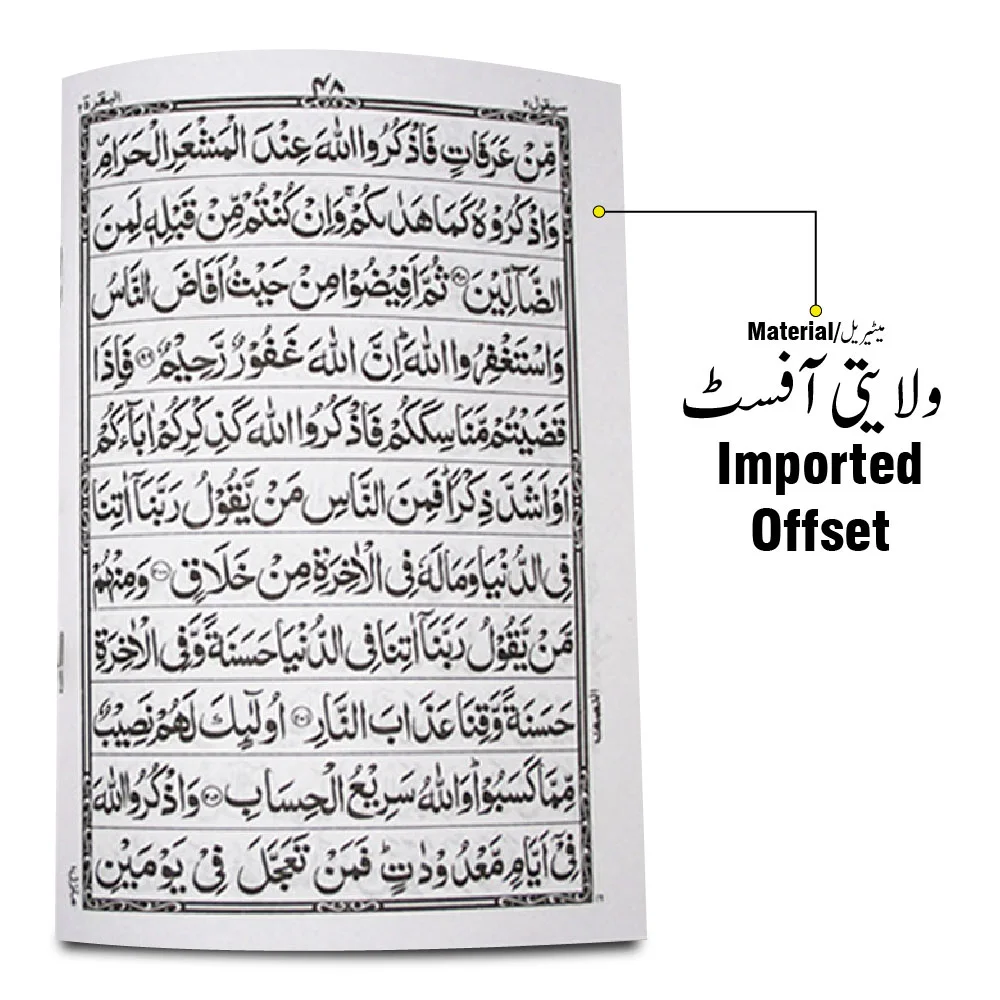 سیقول ۲
۴۸
البقرة ۲
مِّنْ عَرَفَاتٍ فَاذْكُرُوا اللّٰهَ عِنْدَ الْمَشْعَرِ الْحَرَامِ
وَاذْكُرُوْهُ كَمَا هَدٰىكُمْ ۚ وَاِنْ كُنْتُمْ مِّنْ قَبْلِهٖ لَمِنَ
الضَّآلِّيْنَ ۝۱۹۸ ثُمَّ اَفِيْضُوْا مِنْ حَيْثُ اَفَاضَ النَّاسُ
وَاسْتَغْفِرُوا اللّٰهَ ؕ اِنَّ اللّٰهَ غَفُوْرٌ رَّحِيْمٌ ۝۱۹۹ فَاِذَا
قَضَيْتُمْ مَّنَاسِكَكُمْ فَاذْكُرُوا اللّٰهَ كَذِكْرِكُمْ اٰبَآءَكُمْ
اَوْ اَشَدَّ ذِكْرًا ؕ فَمِنَ النَّاسِ مَنْ يَّقُوْلُ رَبَّنَاۤ اٰتِنَا
فِى الدُّنْيَا وَمَا لَهٗ فِى الْاٰخِرَةِ مِنْ خَلَاقٍ ۝۲۰۰ وَمِنْهُمْ
مَّنْ يَّقُوْلُ رَبَّنَاۤ اٰتِنَا فِى الدُّنْيَا حَسَنَةً وَّفِى الْاٰخِرَةِ
حَسَنَةً وَّقِنَا عَذَابَ النَّارِ ۝۲۰۱ اُولٰٓئِكَ لَهُمْ نَصِيْبٌ
مِّمَّا كَسَبُوْا ؕ وَاللّٰهُ سَرِيْعُ الْحِسَابِ ۝۲۰۲ وَاذْكُرُوا اللّٰهَ
فِىْۤ اَيَّامٍ مَّعْدُوْدٰتٍ ؕ فَمَنْ تَعَجَّلَ فِىْ يَوْمَيْنِ
النصف
Material/میٹیریل
ولایتی آفسٹ
Imported
Offset